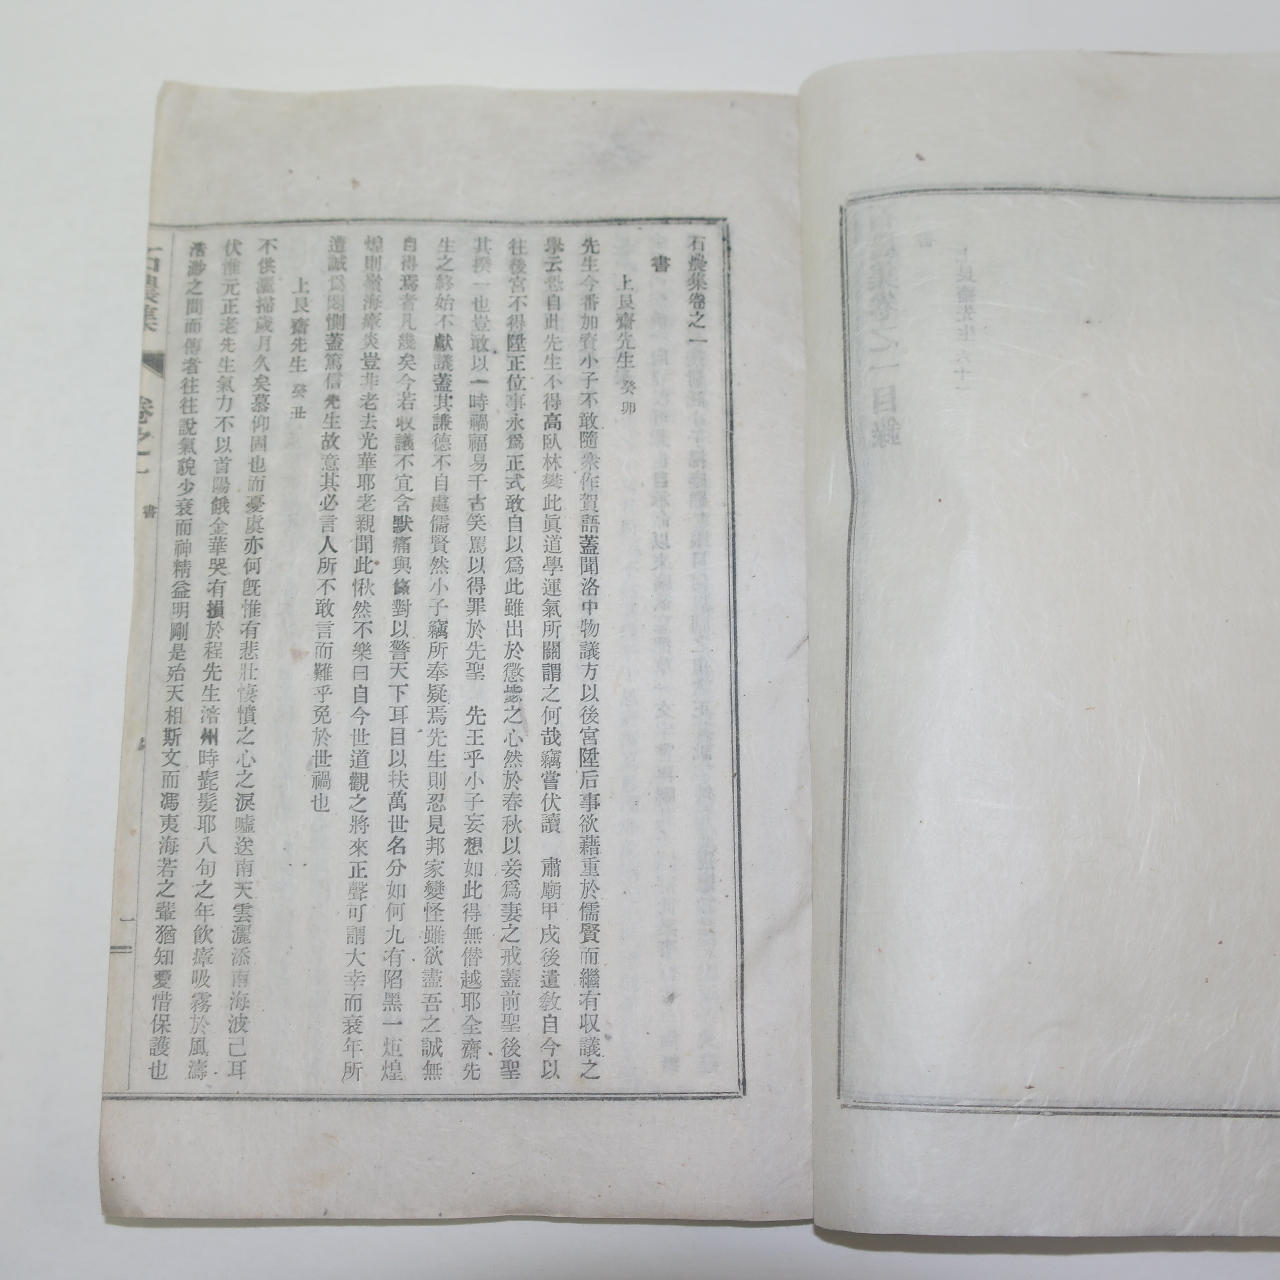 石農集卷之一
書
上艮齋先生 癸卯
先生今番加資小子不敢隨衆作賀語蓋聞洛中物議方以後宮陞后事欲藉重於儒賢而繼有収議之
擧云恐自此先生不得高臥林樊此眞道學運氣所關謂之何哉竊嘗伏讀 肅廟甲戌後遺敎自今以
往後宮不得陞正位事永爲正式敢自以爲此雖出於懲毖之心然於春秋以妾爲妻之戒蓋前聖後聖
其揆一也豈敢以一時禍福易千古笑罵以得罪於先聖 先王乎小子妄想如此得無僭越耶全齋先
生之終始不獻議蓋其謙德不自處儒賢然小子竊所奉疑焉先生則忍見邦家變怪雖欲盡吾之誠無
自得焉者凡幾矣今若収議不宜含默痛與條對以警天下耳目以扶萬世名分如何九有陷黑一炬煌
煌則嶺海瘴炎豈非老去光華耶老親聞此愀然不樂曰自今世道觀之將來正聲可謂大幸而衰年所
遭誠爲悶惻蓋篤信先生故意其必言人所不敢言而難乎免於世禍也
上艮齋先生 癸丑
不供灑掃歲月久矣慕仰固也而憂虞亦何旣惟有悲壯悽憤之心之淚噓送南天雲灑添南海波己耳
伏惟元正老先生氣力不以首陽餓金華哭有損於程先生涪州時髭髮耶八旬之年飮瘴吸霧於風濤
浩渺之間而傳者往往說氣貌少衰而神精益明剛是殆天相斯文而馮夷海若之輩猶知愛惜保護也
石農集 卷之一 書 一